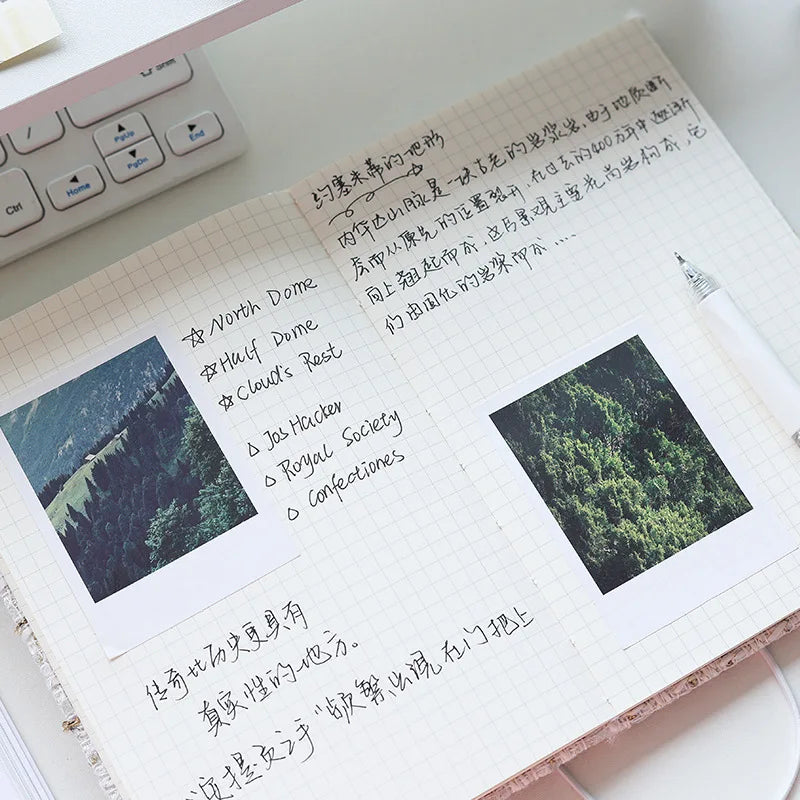 Shift
/
PgUp
PgDn
End
Home
Ctrl
☆North Dome
☆Half Dome
☆Cloud's Rest
△ JosHacker
△ Royal Society
△ Confectiones
传奇比历史更具有
真实性的地方。
"频繁出现在门把上
约塞米蒂的地形
内华达山脉是一块古老的岩浆岩,由于地质断
层而从原先的位置裂开,在过去的400万年中逐渐
向上翘起而成,这片景观主要花岗岩构成,它
们由固化的岩浆而成....